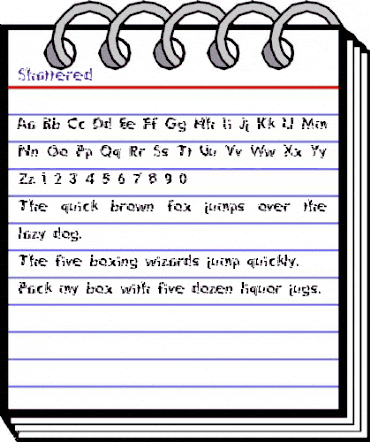 Shattered
Aa Bb Cc Dd Ee Ff Gg Hh Ii Jj Kk Ll Mm
Nn Oo Pp Qq Rr Ss Tt Uu Vv Ww Xx Yy
Zz 1 2 3 4 5 6 7 8 9 0
The quick brown fox jumps over the
lazy dog.
The five boxing wizards jump quickly.
Pack my box with five dozen liquor jugs.